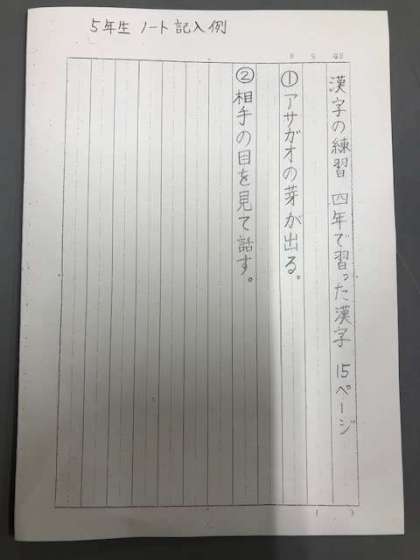 5年生 ノート記入例
漢字の練習 四年で習った漢字 15ページ
①アサガオの芽が出る。
②相手の目を見て話す。